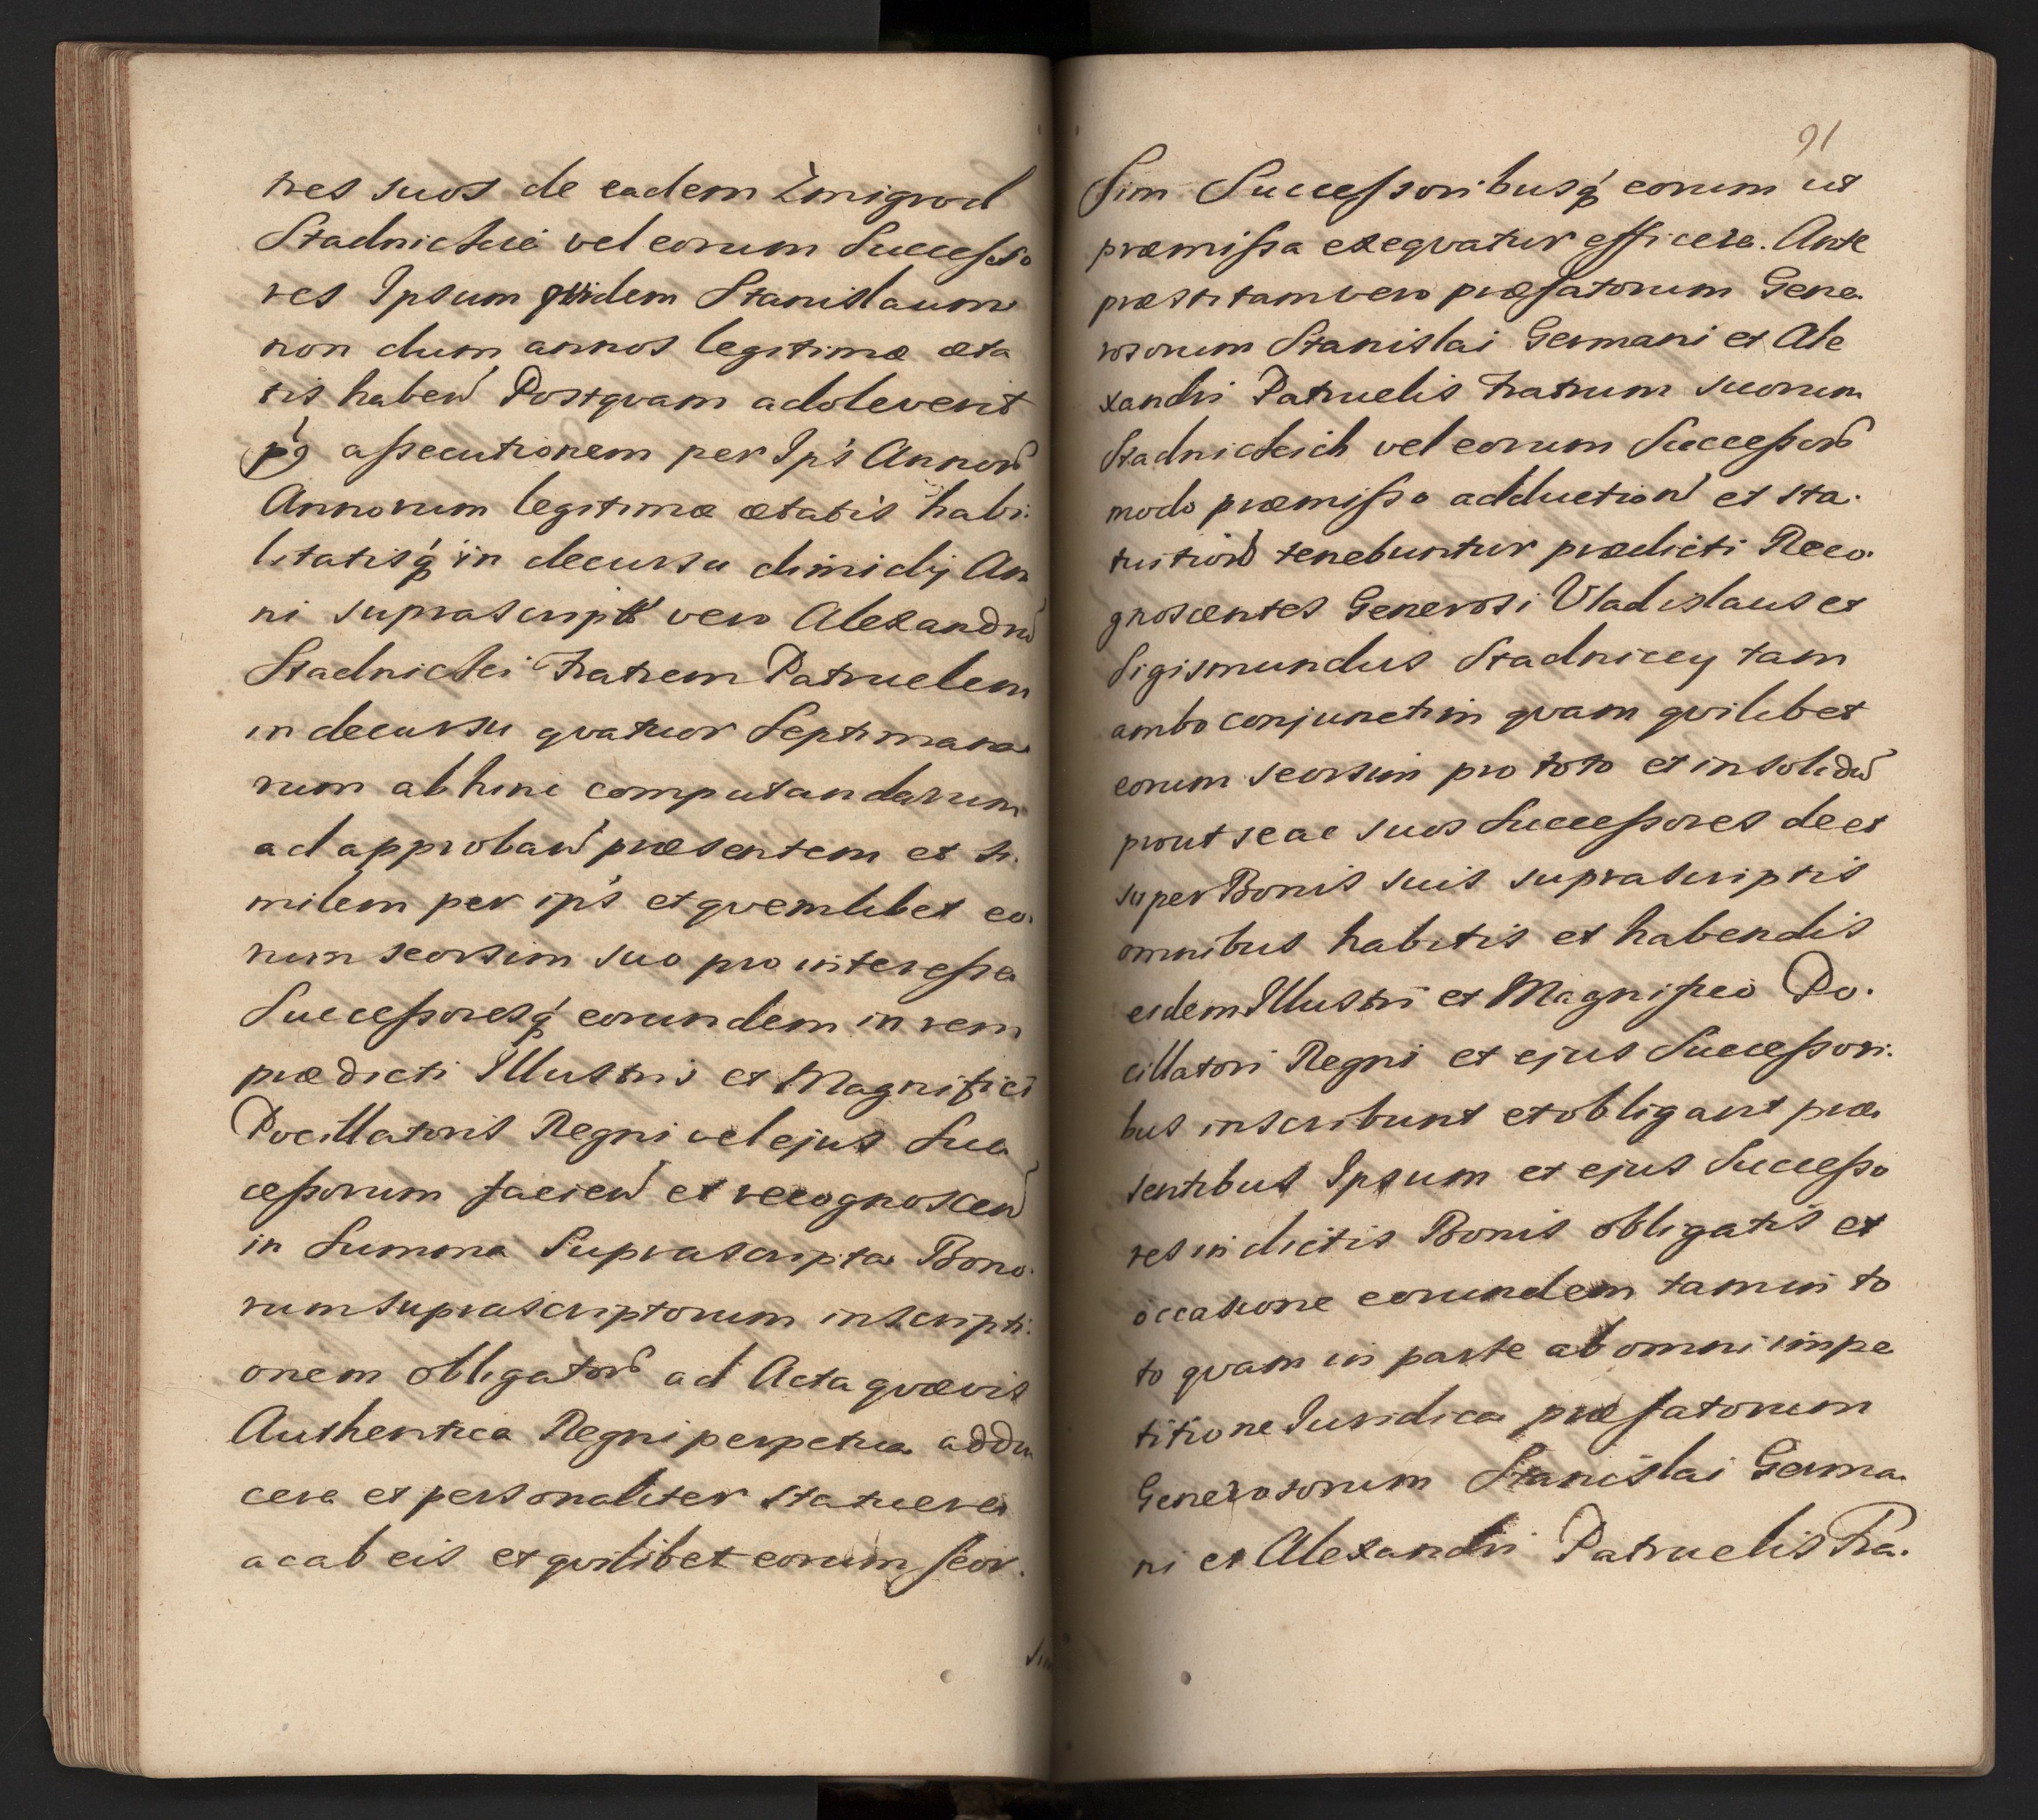 tres suos de eadem Żmigrod
Stadnickie vel eorum Successo
res Ipsum quidem Stanislaum
non dum annos legitimæ æta
tis haben̄ Postqvam adoleverit
assecutionem per Ips's Annor̄
Annorum legitimæ ætatis habi:
litatisq́ in decursu dimidij An
ni suprascript vero Alexandru̅
Stadnicki Fratrem Patruelem
in decursu qvatuor Septimana
rum abhinc computandarum
ad approban̄ præsentem et si.
milem per ips's et qvemlibet eo.
rum seorsim suo pro interesse
Successoresq́ eorundem in rem
prædicti Illustris et Magnifici
Pocillatoris Regni vel ejus Suc
cessorum facien̄ et recognoscen̄
in Summa Suprascripta Bono.
rum suprascriptorum inscripti:
onem obligator̄ ad Acta qvævis
Authentica Regni perpetua addu
cere et personaliter statuere
ac ab eis et qvilibet eorum seor.
91
Sim Successoribusq́ eorum ut
præmissa exeqvatur efficere. Ante
præstitam vero præfatorum Gene.
rosorum Stanislai Germani et Ale
xandri Patruelis Fratrum suorum
Stadnickich vel eorum Successor̄
modo præmisso adduction̄ et sta.
tuition̄ tenebuntur prædicti Reco.
gnoscentes Generosi Vladislaus et
Sigismundus Stadniccy tam
ambo conjunctim qvam qvilibet
eorum seorsim pro toto et in solidu̅
prout se ac suos Successores de et
super Bonis suis suprascriptis
omnibus habitis et habendis
eidem Illustri et Magnifico Po.
cillatori Regni et ejus Successori:
bus inscribunt et obligant præ
sentibus Ipsum et ejus Successo
res in dictis Bonis obligatis et
occasione eorundem tam in to
to qvam in parte ab omni impe
titione Juridica præfatorum
Generosorum Stanislai Germa.
ni et Alexandri Patruelis Fra.